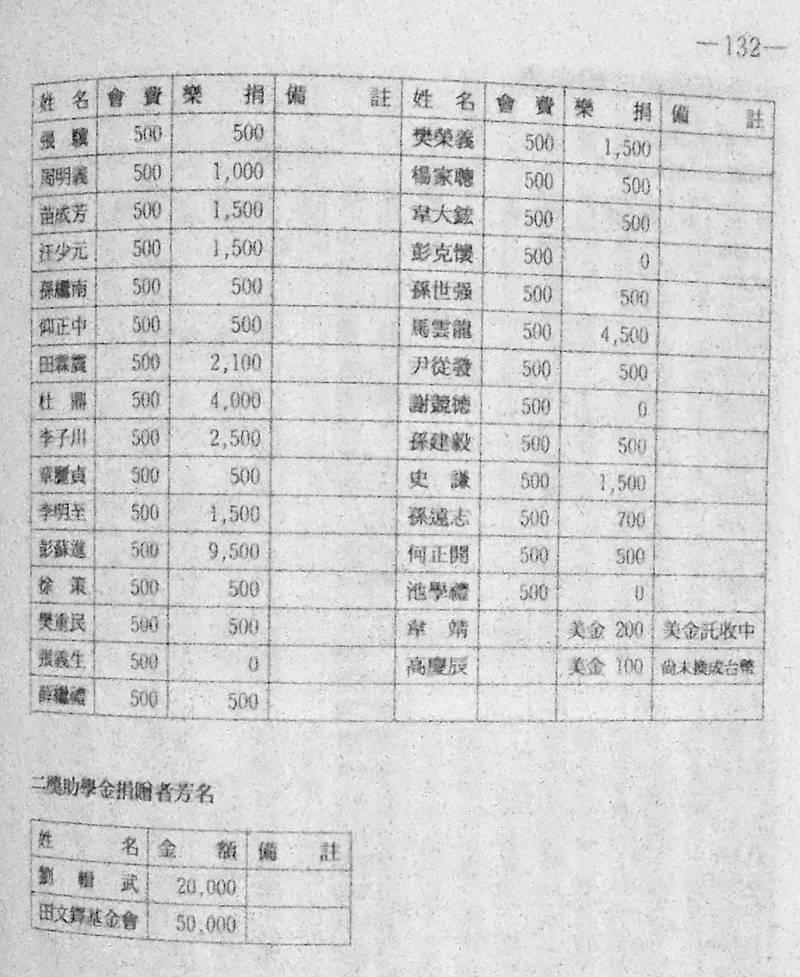 —132—
姓名 會費 樂捐 備註 姓名 會費 樂捐 備註
張驥 500 500 樊榮義 500 1,500
周明義 500 1,000 楊家聰 500 500
苗成芳 500 1,500 韋大鋐 500 500
汪少元 500 1,500 彭克懷 500 0
孫繼南 500 500 孫世强 500 500
仰正中 500 500 馬雲龍 500 4,500
田霖震 500 2,100 尹從發 500 500
杜鼎 500 4,000 謝競德 500 0
李子川 500 2,500 孫建毅 500 500
章麗貞 500 500 史謙 500 1,500
李明至 500 1,500 孫遠志 500 700
彭蘇進 500 9,500 何正開 500 500
徐策 500 500 池學禮 500 0
樊重民 500 500 韋靖 美金 200 美金託收中
張義生 500 0 高慶辰 美金 100 尚未換成台幣
薛繼禮 500 500
二獎助學金捐贈者芳名
姓名 金額 備註
劉輯武 20,000
田文鐸基金會 50,000